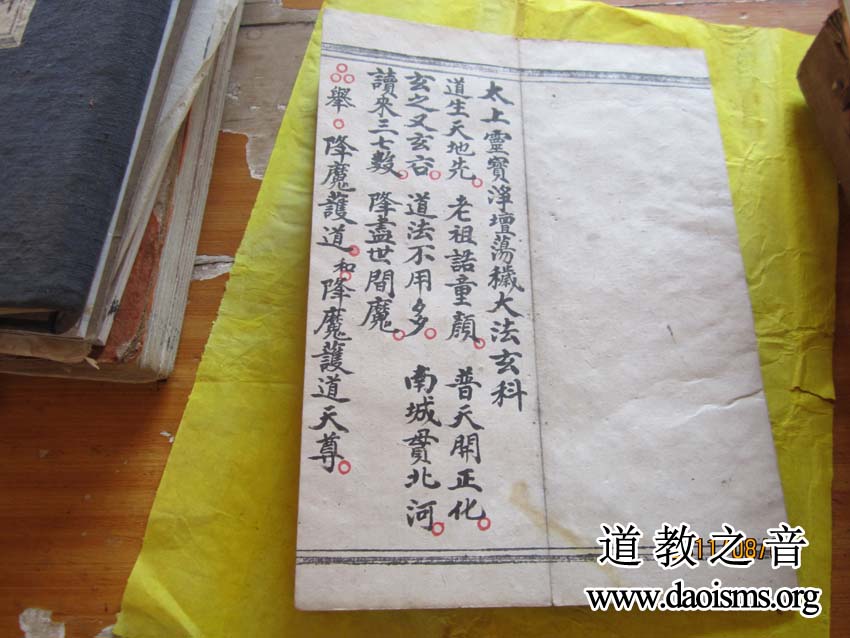 太上靈寶淨壇蕩穢大法玄科
道生天地先。老祖誥童顏。普天開正化。
玄之又玄谷。道法不用多。南城貫北河。
讀來三七數。降盡世間魔。
舉。降魔護道。和降魔護道天尊。
道教之音
www.daoisms.org